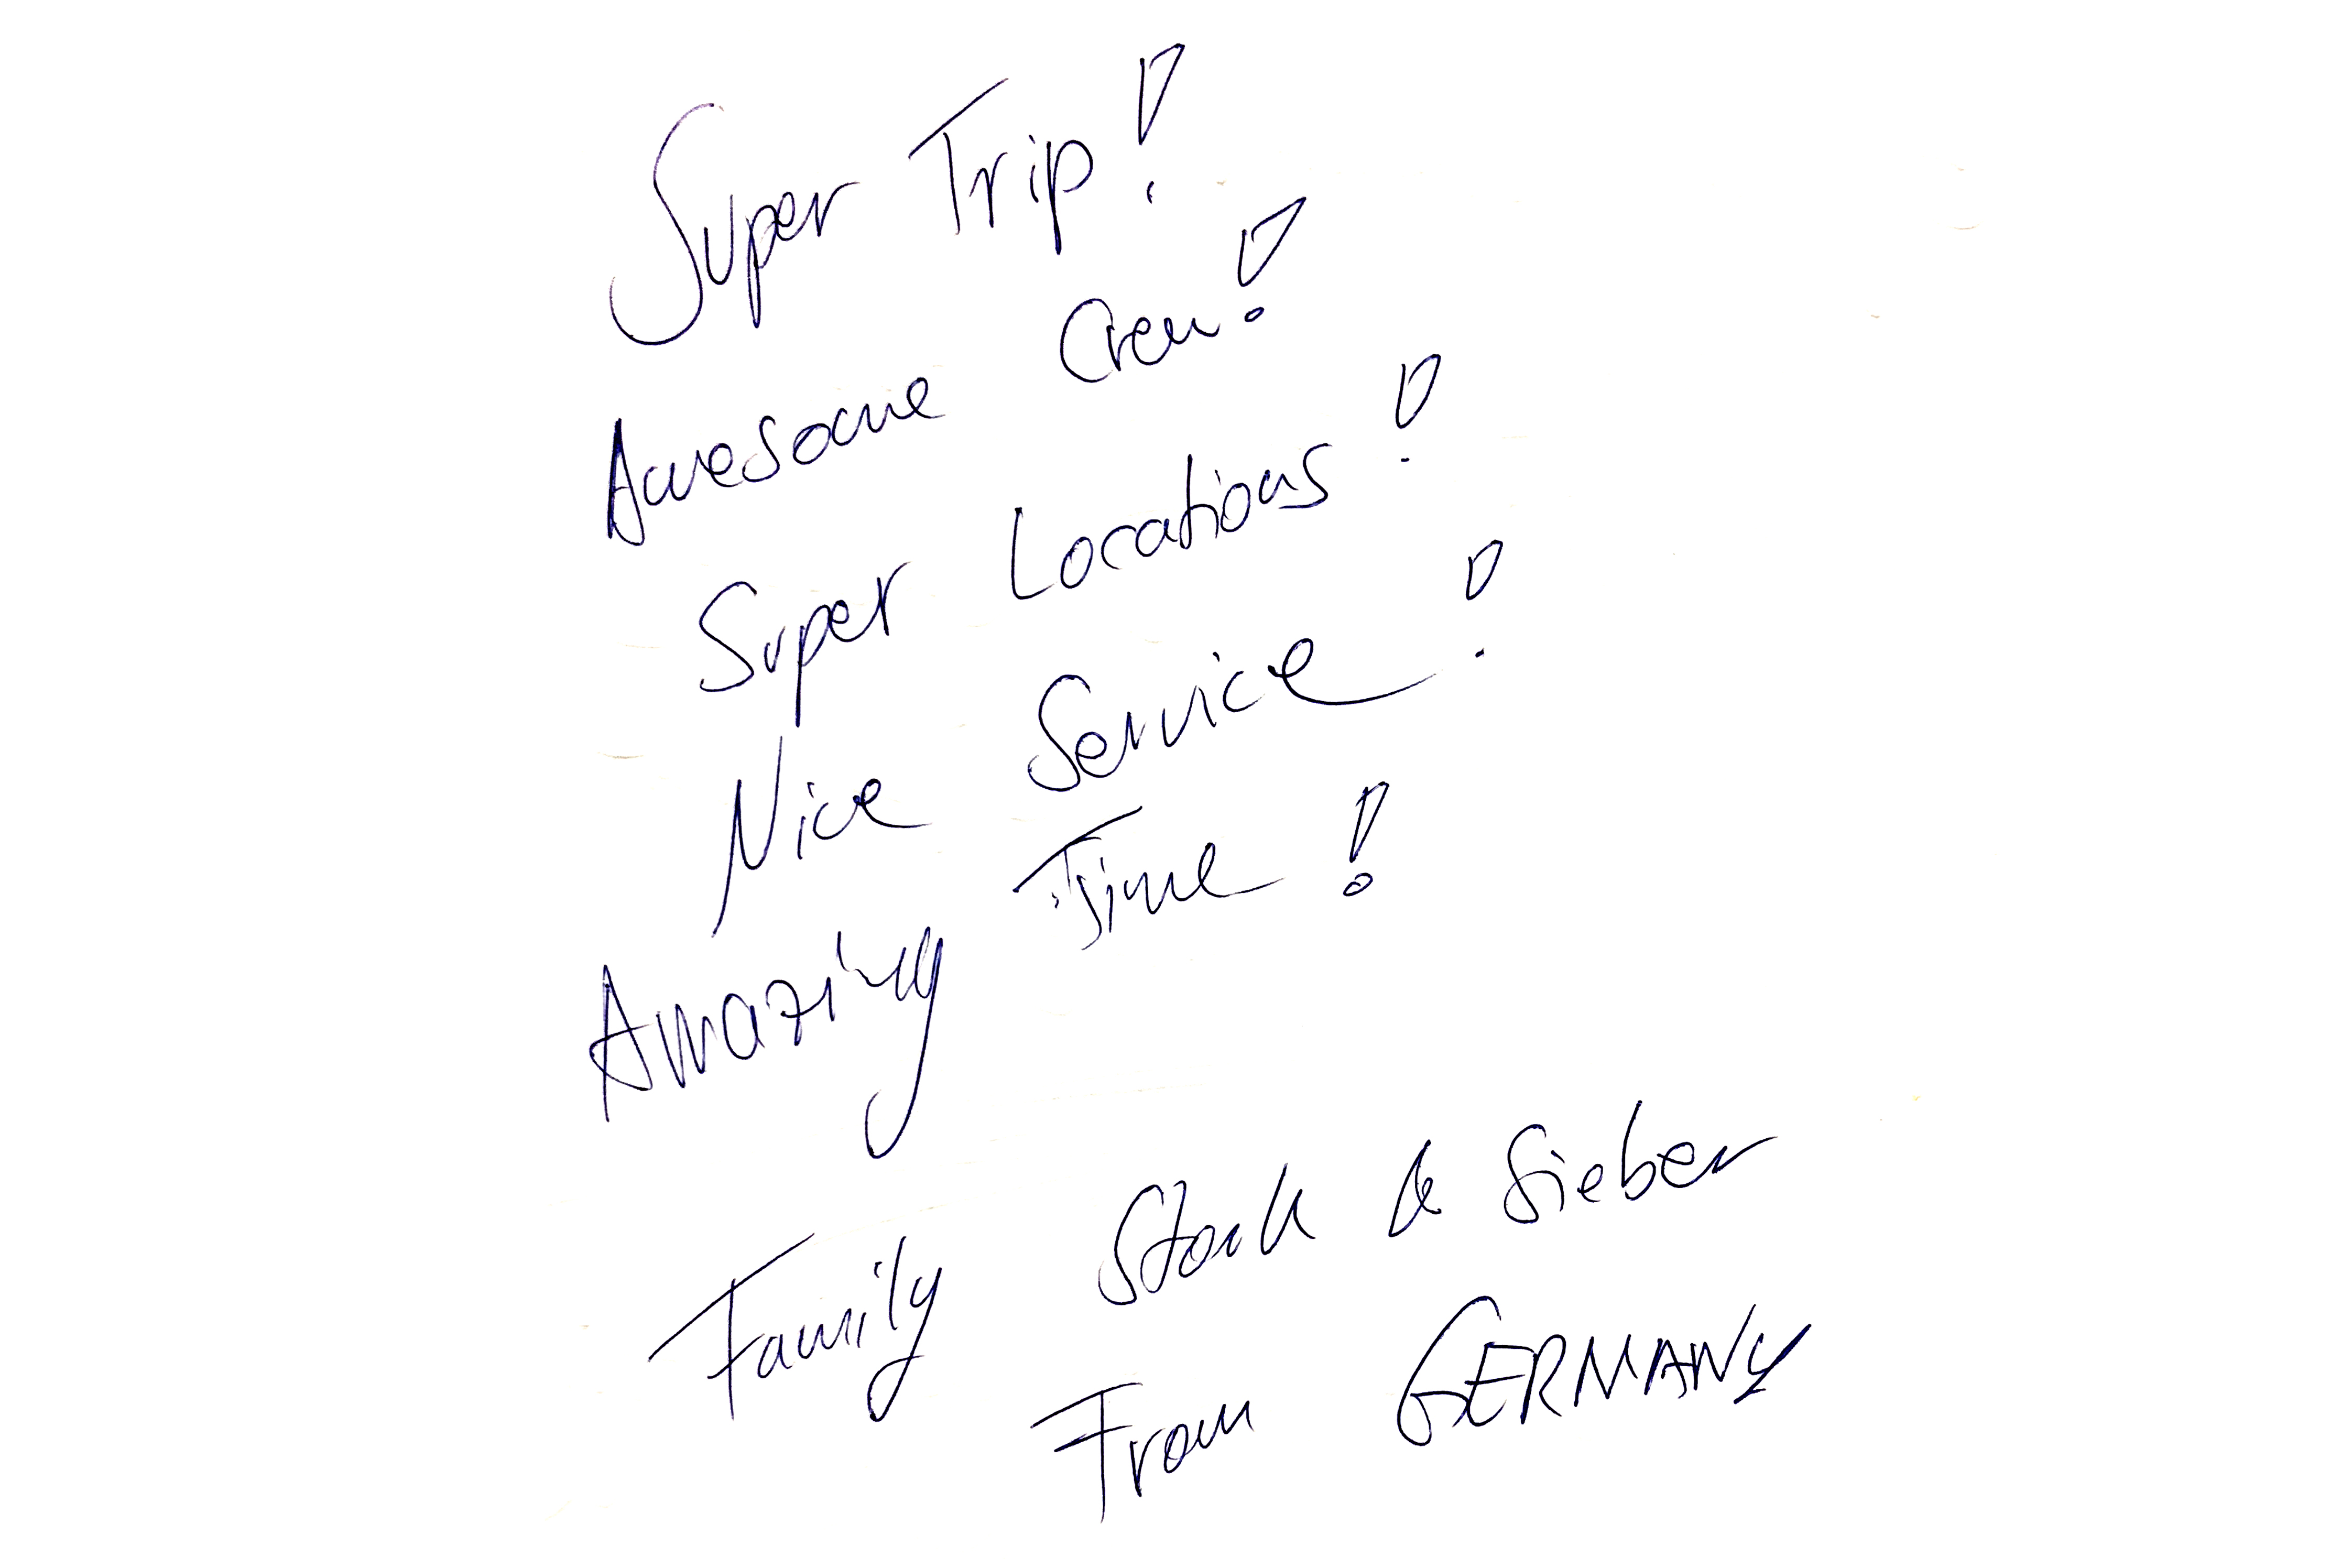 Super Trip!
Awesome Crew!
Super Locations!
Nice Service!
Amazing Time!
Family Stark & Sieber
From GERMANY